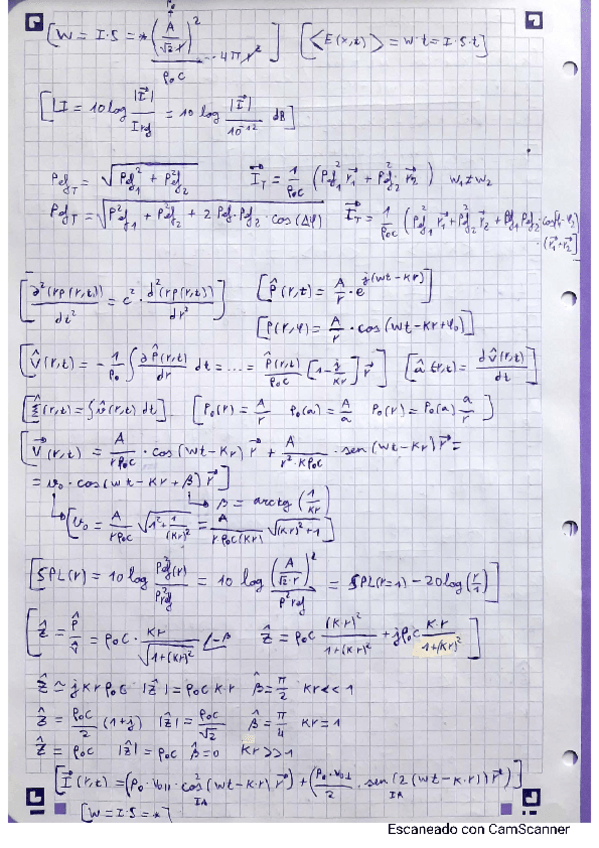 [W = I·S = * (A/(√2 r))² / ρ₀c ··· 4πr² ] [<E(x,t)> = W·t = I·S·t]
[LI = 10 log |I⃗|/Iref = 10 log |I⃗|/10⁻¹² dB]
PefT = √(P²ef₁ + P²ef₂) I⃗T = 1/ρ₀c (P²ef₁ r⃗₁ + P²ef₂ r⃗₂) w₁≠w₂
PefT = √(P²ef₁ + P²ef₂ + 2·Pef₁·Pef₂·cos(Δφ)) I⃗T = 1/ρ₀c (P²ef₁ r⃗₁ + P²ef₂ r⃗₂ + Pef₁Pef₂·cos(φ₁-φ₂)
·(r⃗₁+r⃗₂)]
[∂²(rp(r,t))/dt² = c²· d²(rp(r,t))/dr²] [p̂(r,t) = A/r · e^j(wt-kr)]
[p(r,φ) = A/r · cos(wt-kr+φ₀)]
[v̂(r,t) = -1/ρ₀ ∫ ∂p̂(r,t)/dr dt = ... = p̂(r,t)/ρ₀c [1 - j/kr] r⃗] [â(r,t) = dv̂(r,t)/dt]
[ξ̂(r,t) = ∫v̂(r,t) dt] [P₀(r) = A/r P₀(a) = A/a P₀(r) = P₀(a) a/r]
[v⃗(r,t) = A/rρ₀c · cos(wt-kr) r⃗ + A/r²·kρ₀c · sen(wt-kr) r⃗ =
= v₀·cos(wt-kr+β) r⃗]
β = arctg (1/kr)
[v₀ = A/rρ₀c √(1² + 1/(kr)²) = A/rρ₀c(kr) √((kr)²+1)]
[SPL(r) = 10 log P²ef(r)/P²ref = 10 log (A/(√2·r))²/P²ref = SPL(r=1) - 20 log(r/1)]
[ẑ = p̂/v̂ = ρ₀c · kr/√(1+(kr)²) ∠β ẑ = ρ₀c (kr)²/1+(kr)² + jρ₀c k·r/1+(kr)²]
ẑ ≃ jkrρ₀c |ẑ| = ρ₀c k·r β̂ = π/2 kr<<1
ẑ = ρ₀c/2 (1+j) |ẑ| = ρ₀c/√2 β̂ = π/4 kr=1
ẑ = ρ₀c |ẑ| = ρ₀c β̂=0 kr>>1
[I⃗(r,t) = (P₀·v₀∥·cos²(wt-k·r) r⃗) + (P₀·v₀⊥/2 · sen(2(wt-k·r)) r⃗)]
IA IR
[W = I·S = *]
Escaneado con CamScanner